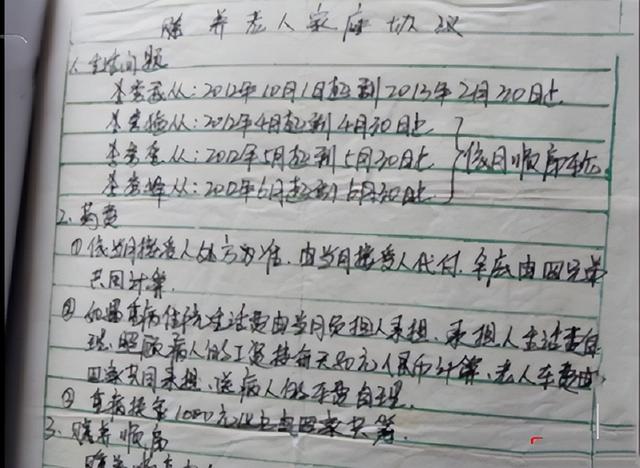 赡养老人家庭协议
1、生活问题
从：2012年10月1日起到2013年2月30日止
从：2012年4月起到4月30日止
从：2012年5月起到5月30日止 依月顺序
从：2012年6月起到6月30日止
2、药费
①依当月接受人处方为准．由当月接受人代付．年底由四兄弟
共同计算．
②如遇重病住院生活费由当月负担人承担．承担人生活费自
理．照顾病人的工资按每天80元人民币计算、老人车费由
四家共同承担．送病人的车费自理．
③重病按金1000元以上由四家共算．
3、赡养顺序